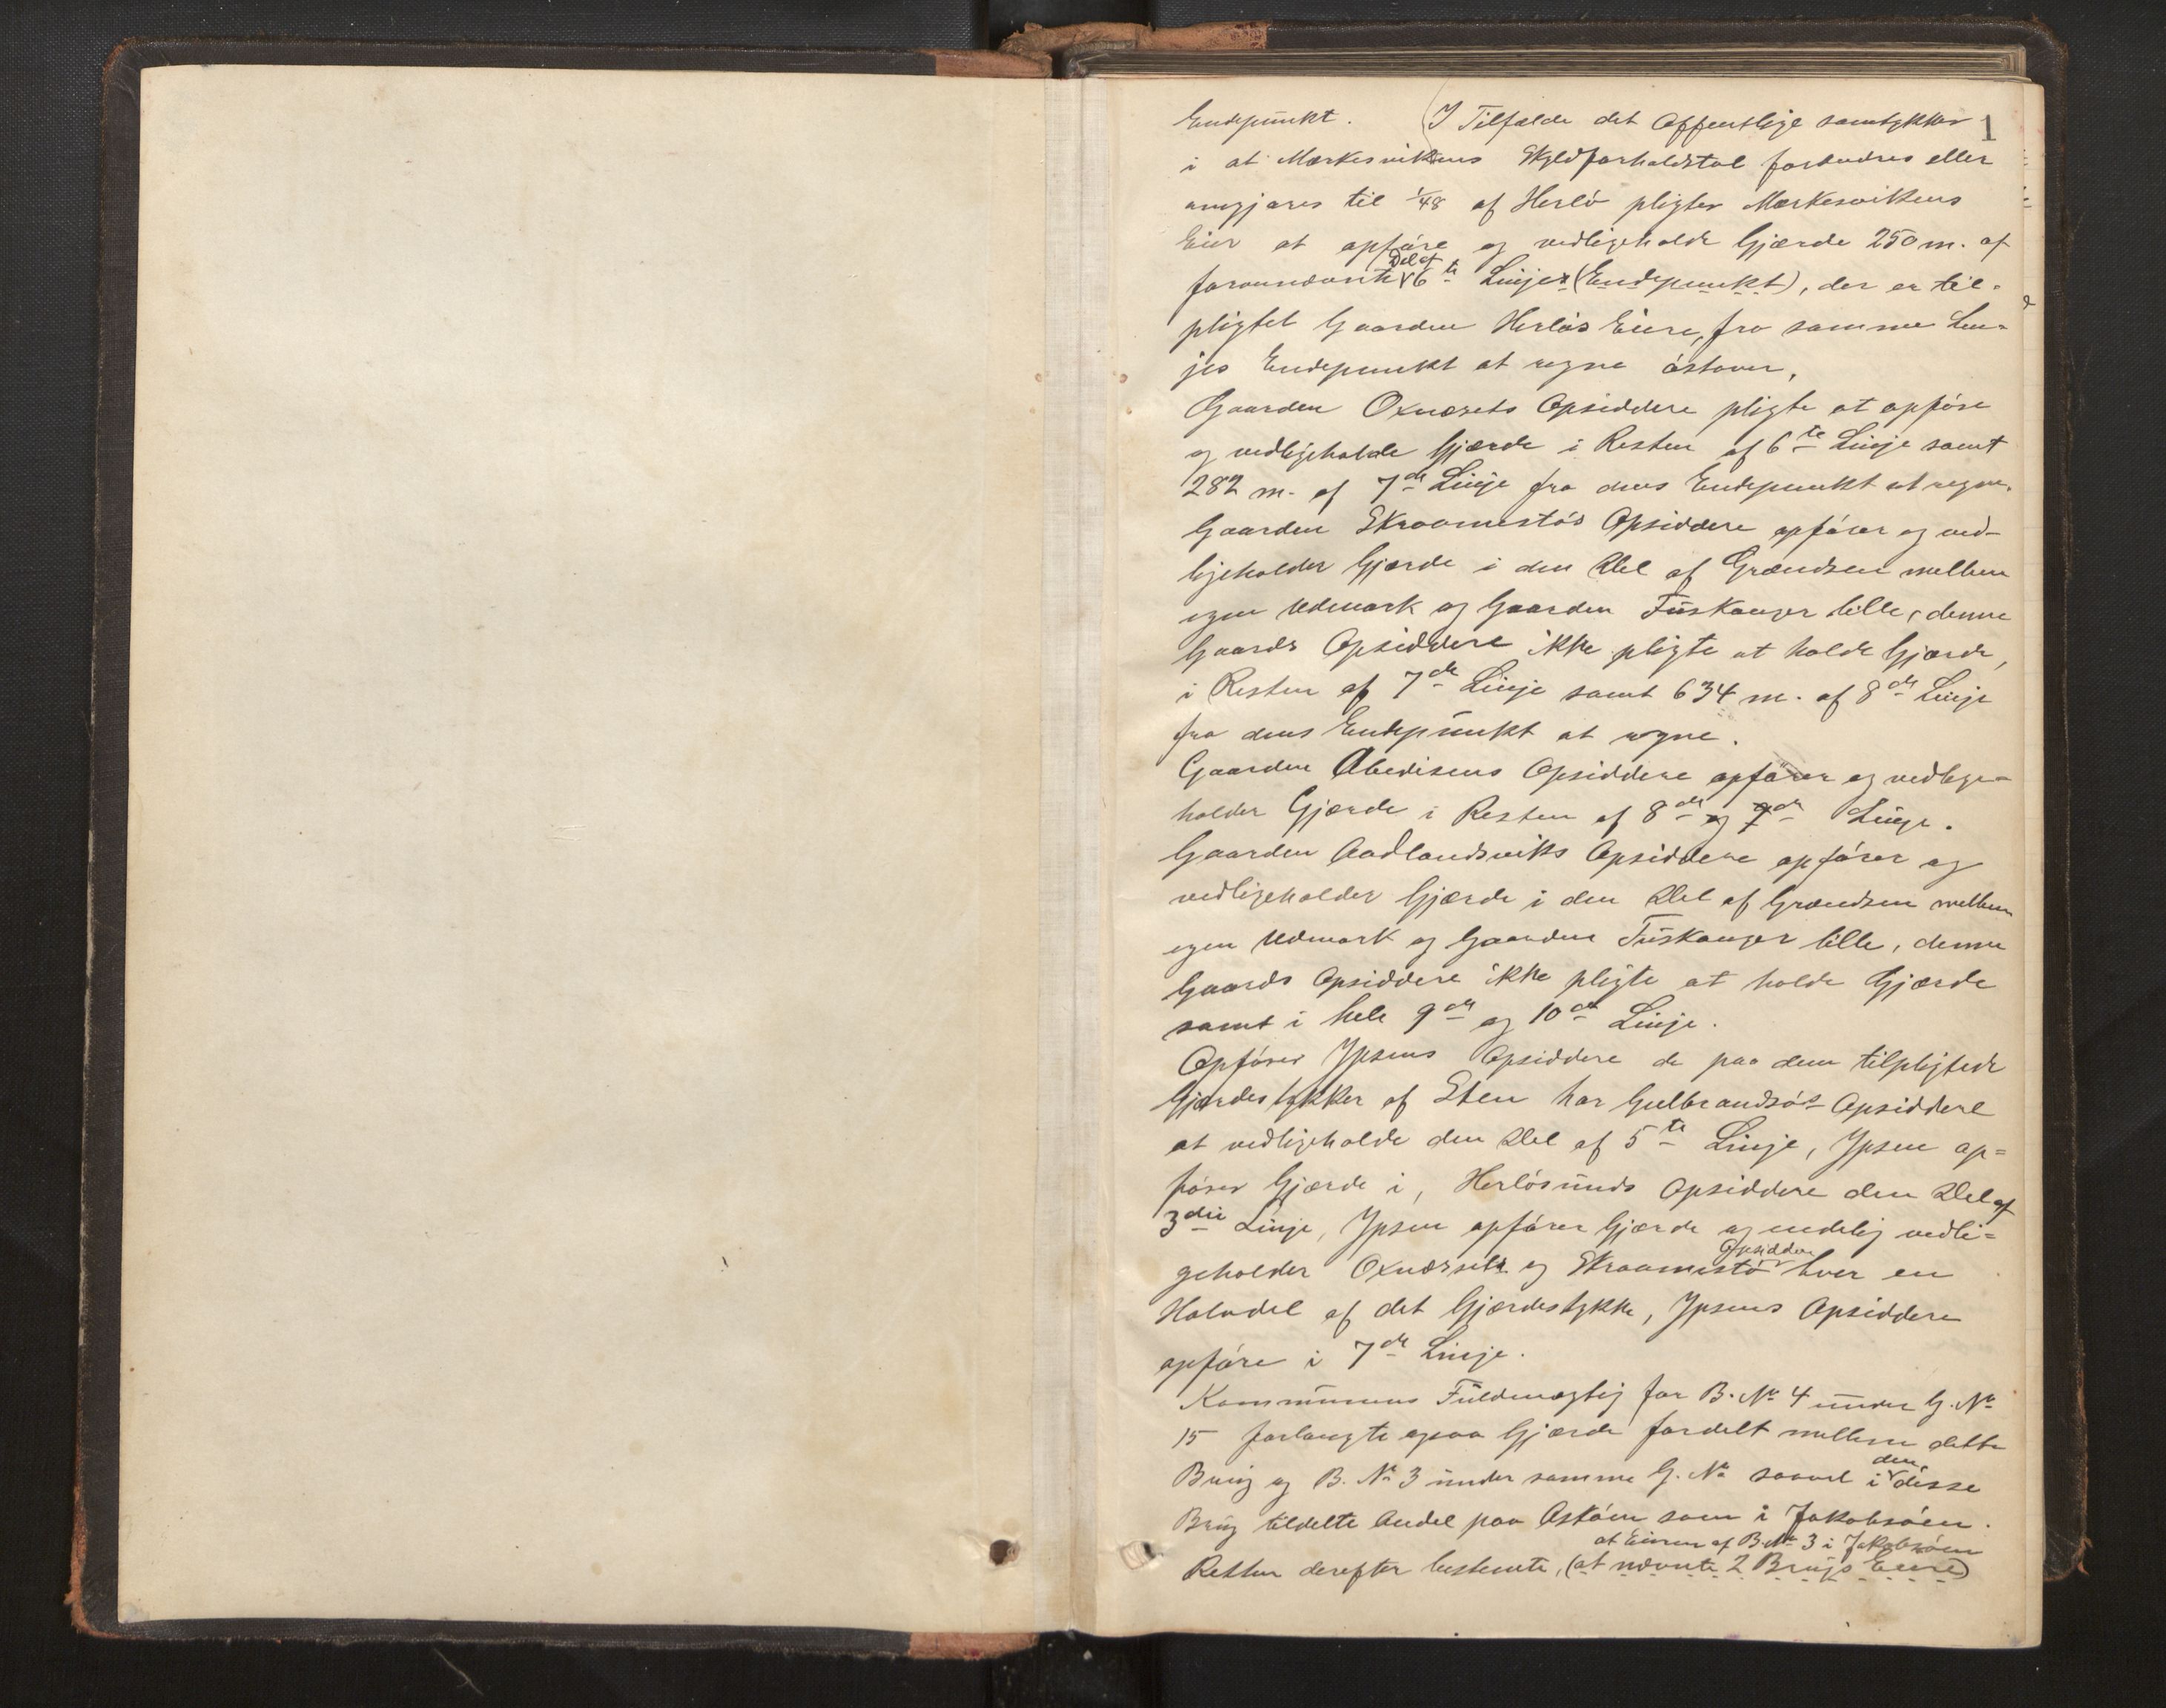 Endepunkt. (I Tilfælde det Offentlige samtykker 1
i at Mærkesvikens Skyldforholdstal forandres eller
omgjøres til 1/48 af Herlö pligter Mærkesvikens
Eier at opföre og vedligeholde Gjærde 250 m. af
Del af
forannævnte 6te Linjes (Endepunkt), der er til-
pligtet Gaarden Herlös Eiere, fra samme Lin-
jes Endepunkt at regne östover,
Gaarden Oxnæsets Opsiddere pligte at opföre
og vedligeholde Gjærde i Resten af 6te Linje samt
282 m. af 7de Linje fra dens Endepunkt at regne.
Gaarden Skraamestös Opsiddere opförer og ved-
ligeholder Gjærde i den Del af Grændsen mellem
egen Udmark og Gaarden Füskanger lille, denne
Gaards Opsiddere ikke pligte at holde Gjærde,
i Resten af 7de Linje samt 634 m. af 8de Linje
fra dens Endepunkt at regne.
Gaarden Abedisens Opsiddere opförer og vedlige-
holder Gjærde i Resten af 8de og 9de Linje.
Gaarden Aadlandsviks Opsiddere opförer og
vedligeholder Gjærde i den Del af Grændsen mellem
egen Udmark og Gaarden Füskanger lille, denne
Gaards Opsiddere ikke pligte at holde Gjærde
samt i hele 9de og 10de Linje.
Opförer Ypsens Opsiddere de paa dem tilpligtede
Gjærdestykker af Sten har Gulbrandsös Opsiddere
at vedligeholde den Del af 5te Linje, Ypsen op=
förer Gjærde i, Herlösunds Opsiddere den Del af
3die Linje, Ypsen opförer Gjærde og endelig vedli=
Opsiddere
geholder Oxnæsets og Skraamestö hver en
Halvdel af det Gjærdestykke, Ypsens Opsiddere
opföre i 7de Linje.
Kommunens Fuldmægtig for B. No 4 under G. No
15 forlangte ogsaa Gjærde fordelt mellem dette
Brug og B. No 3 under samme G. No saavel i den disse
Brug tildelte Andel paa Asköen som i Jakobsöen.
at Eieren af B. No 3 i Jakobsöen
Retten derefter bestemte, (at nævnte 2 Brugs Eiere)